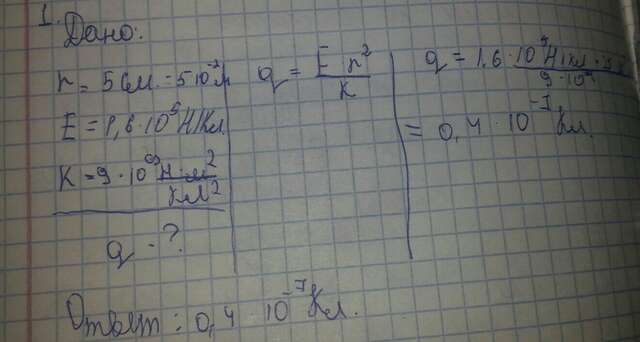 1.
Дано:
r = 5 см. = 5 10⁻² м
E = 1,6 · 10⁵ Н/Кл
K = 9 · 10⁹ Н · м² / Кл²
q - ?
q = E r² / K
q = 1,6 · 10⁵ Н/Кл · / 9 · 10⁹
= 0,4 · 10⁻⁷ Кл.
Ответ: 0,4 · 10⁻⁷ Кл.